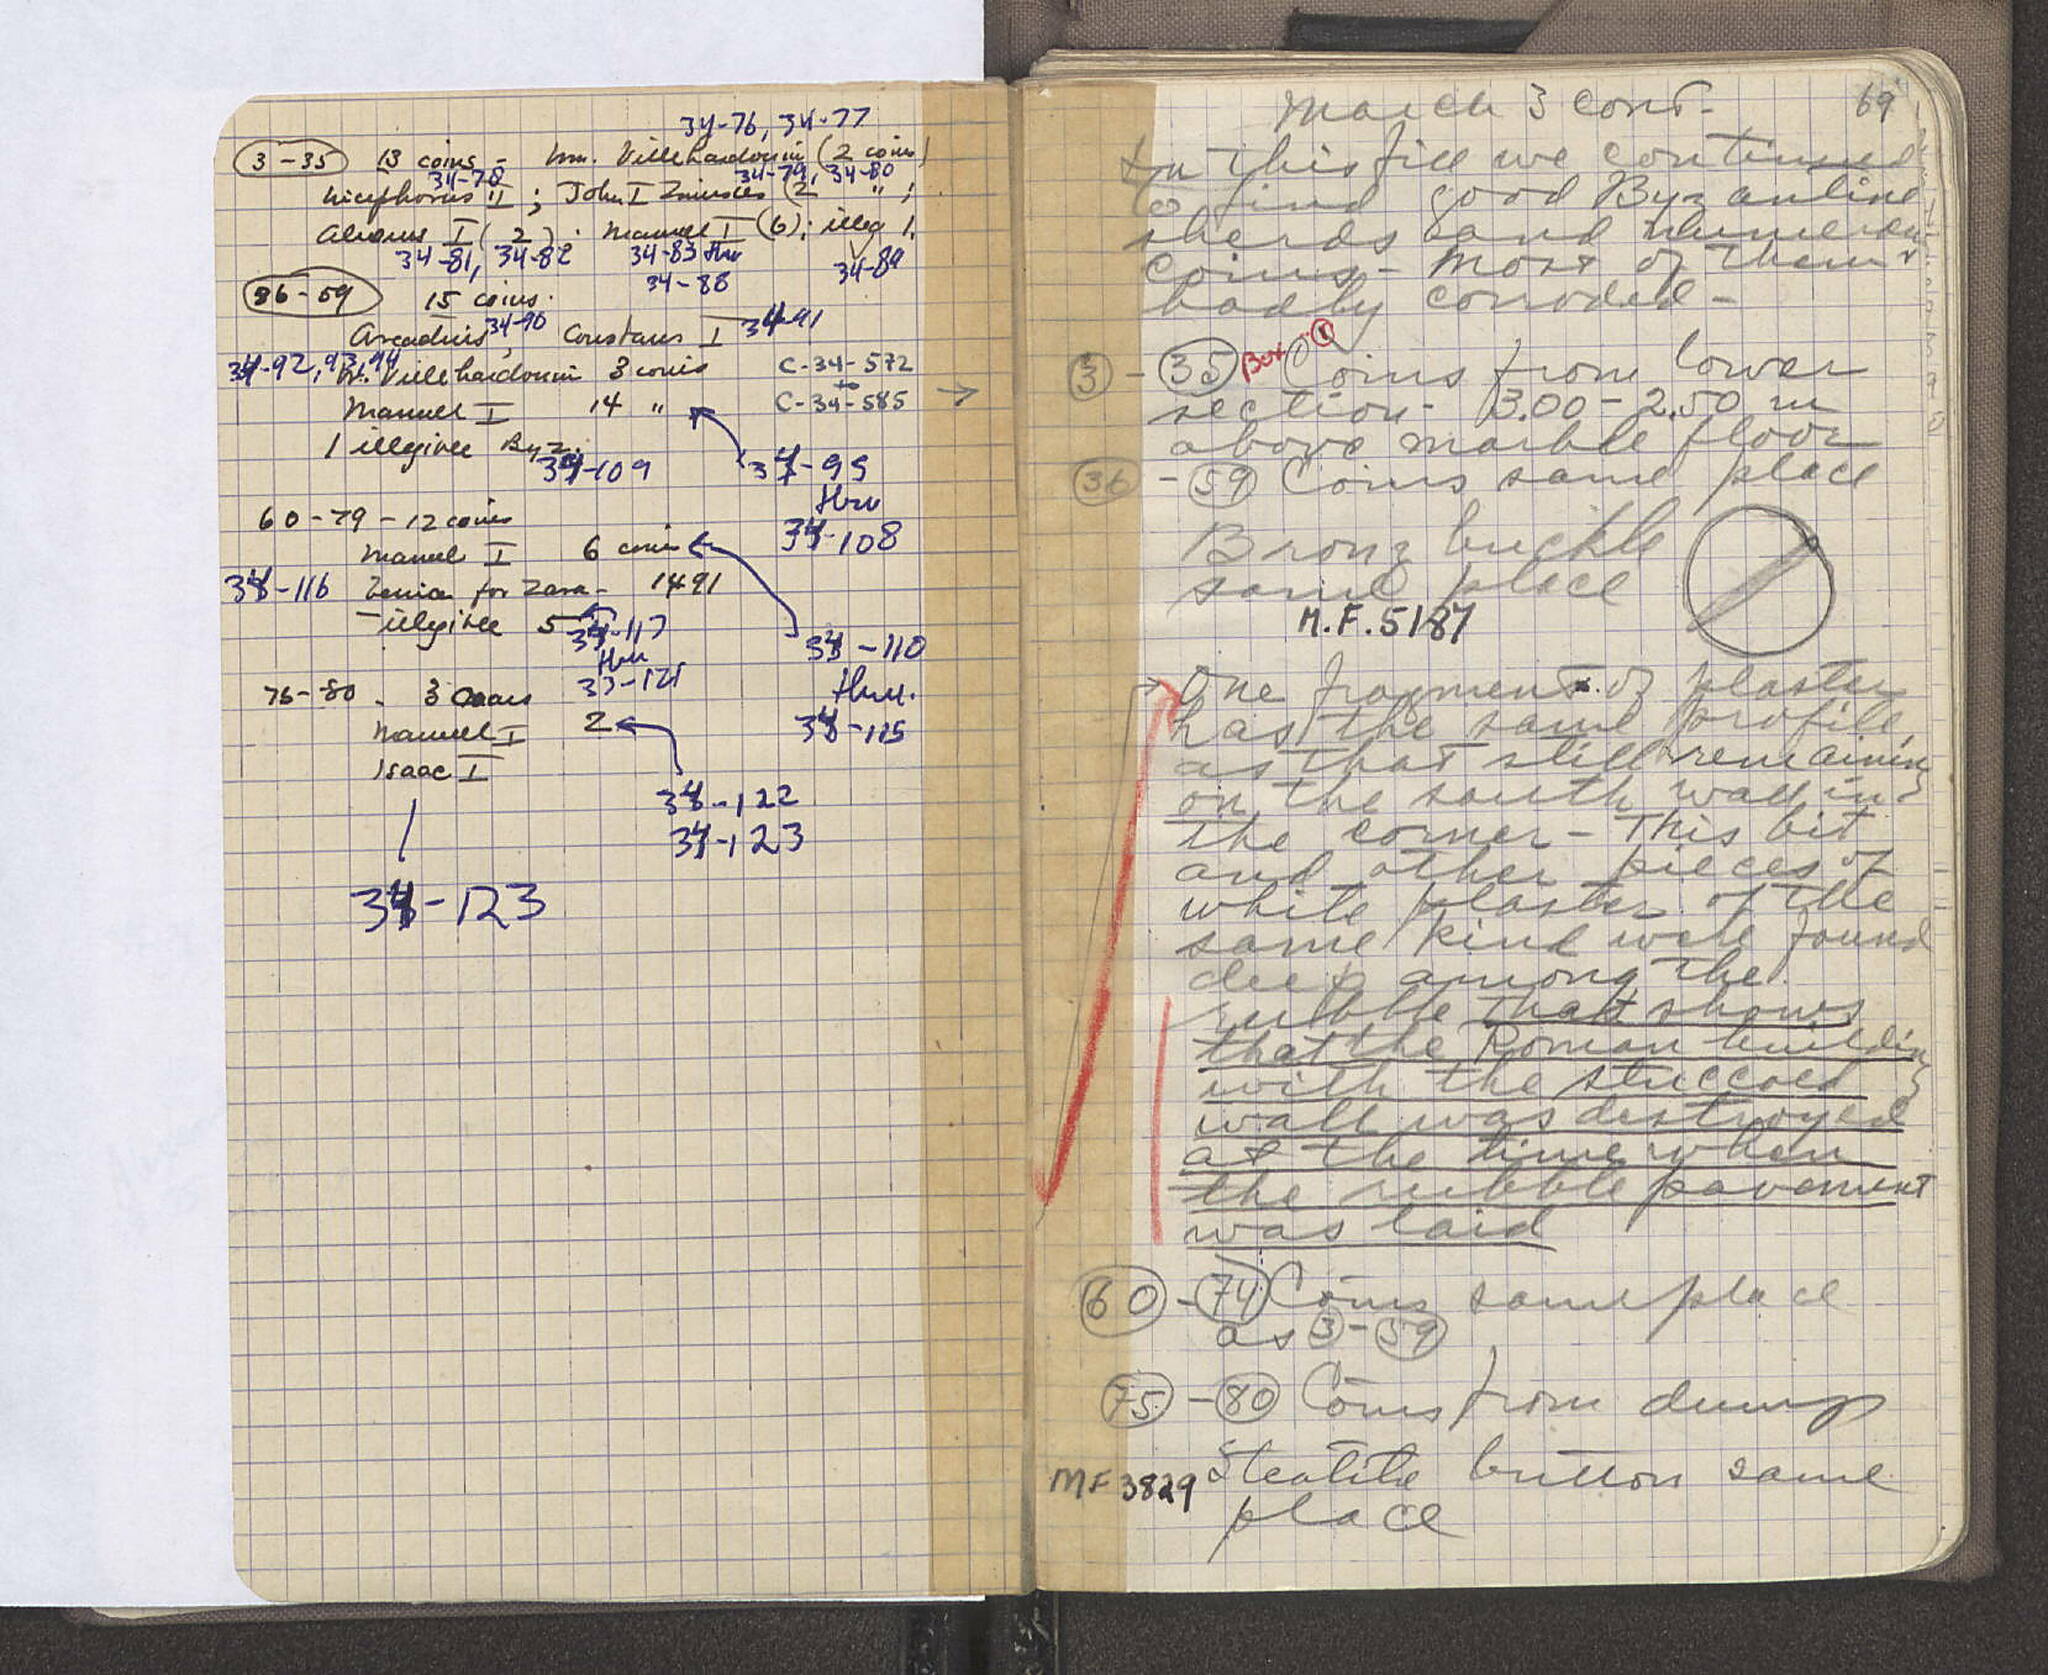 34-76, 34-77
3-35 13 coins - Wm. Villehardouin (2 coins)
34-78 34-79, 34-80
Nicephorus II ; John I Zimisces (2 " ;
Alexius I (2) . Manuel I (6); illeg 1.
34-81, 34-82 34-83 thru 34-89
34-88
36-59 15 coins.
Arcadius 34-90, Constans I 34-91
34-92, 93, 94 W. Villehardouin 3 coins C-34-572
to
Manuel I 14 " C-34-585 →
1 illegible Byz.
34-109 34-95
thru
34-108
60-79 - 12 coins
Manuel I 6 coins
34-116 Venice for Zara - 1491
illegible 5
34-117
thru
33-121
34-110
thru.
34-115
75-80 . 3 coins
Manuel I 2
Isaac I
34-122
34-123
34-123
March 3 cont- 69
In this fill we continued
to find good Byzantine
sherds and numerous
coins - most of them
badly corroded -
3 - 35 Box 1 Coins from lower
section - 3.00 - 2.50 m
above marble floor
36 - 59 Coins same place
Bronz buckle
same place
M.F. 5187
One fragment of plaster
has the same profile,
as that still remaining
on the south wall in
the corner - This bit
and other pieces of
white plaster of the
same kind were found
deep among the
rubble that shows
that the Roman building
with the stuccoed
wall was destroyed
at the time when
the rubble pavement
was laid
60 - 74 Coins same place
as 3 - 59
75 - 80 Coins from dump
MF 3829 Steatite button same
place